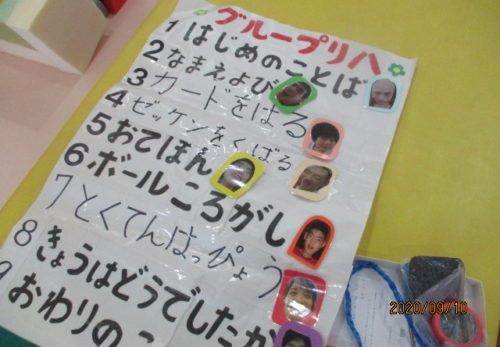 グループリハ
1 はじめのことば
2 なまえよび
3 カードをはる
4 ゼッケンをくばる
5 おてほん
6 ボールころがし
7 とくてんはっぴょう
8 きょうはどうでしたか
9 おわりのこ
2020/09/10